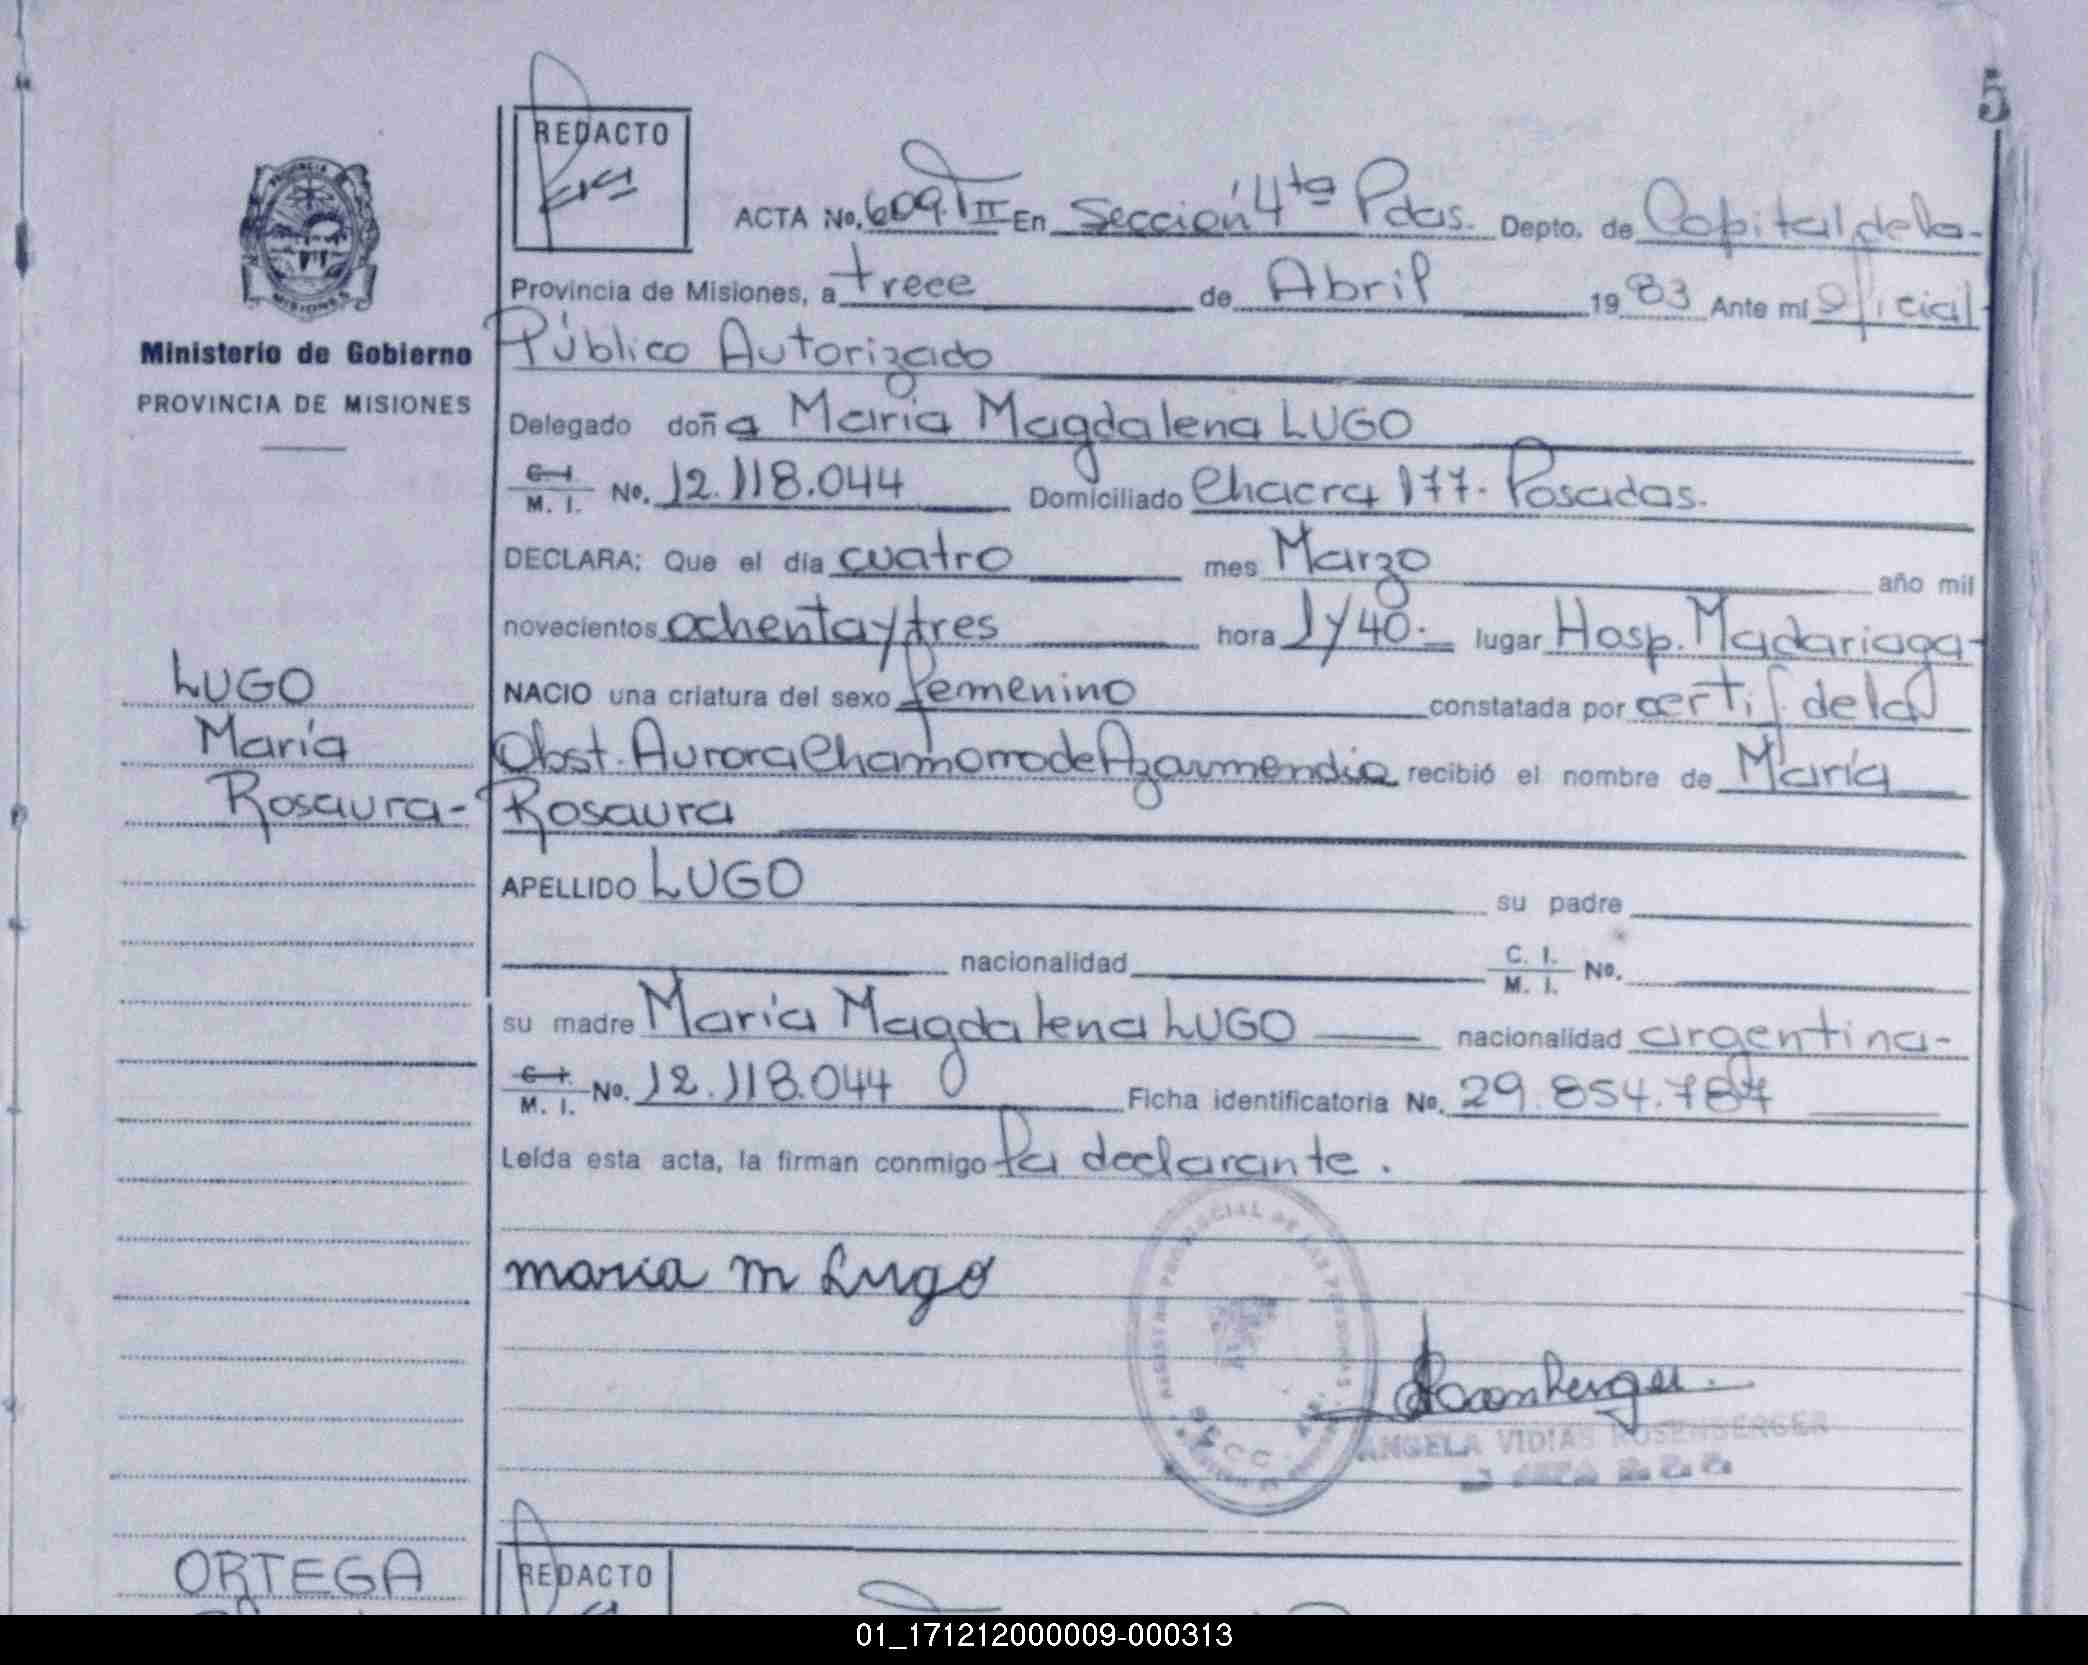 5
REDACTO
ACTA No. 609. T II En Sección 4ta Pdas. Depto. de Capital de la-
Provincia de Misiones, a trece de Abril 1983 Ante mí Oficial
Ministerio de Gobierno
Público Autorizado
PROVINCIA DE MISIONES
Delegado doña María Magdalena LUGO
C. I. M. I. No. 12.118.044 Domiciliado Chacra 177. Posadas.
DECLARA: Que el día cuatro mes Marzo año mil
novecientos ochenta y tres hora 1 y 40. lugar Hosp. Madariaga-
LUGO
NACIO una criatura del sexo femenino constatada por certif. de la
María
Obst. Aurora Chamorro de Azarmendia recibió el nombre de María
Rosaura-
Rosaura
APELLIDO LUGO su padre
nacionalidad C. I. M. I. No.
su madre María Magdalena LUGO nacionalidad argentina-
C. I. M. I. No. 12.118.044 Ficha identificatoria No. 29.854.787
Leída esta acta, la firman conmigo la declarante.
maria m Lugo
REGISTRO PROVINCIAL DE LAS PERSONAS
SECC. 4ta
ANGELA VIDIAS ROSENBERGER
ORTEGA
REDACTO
01_171212000009-000313